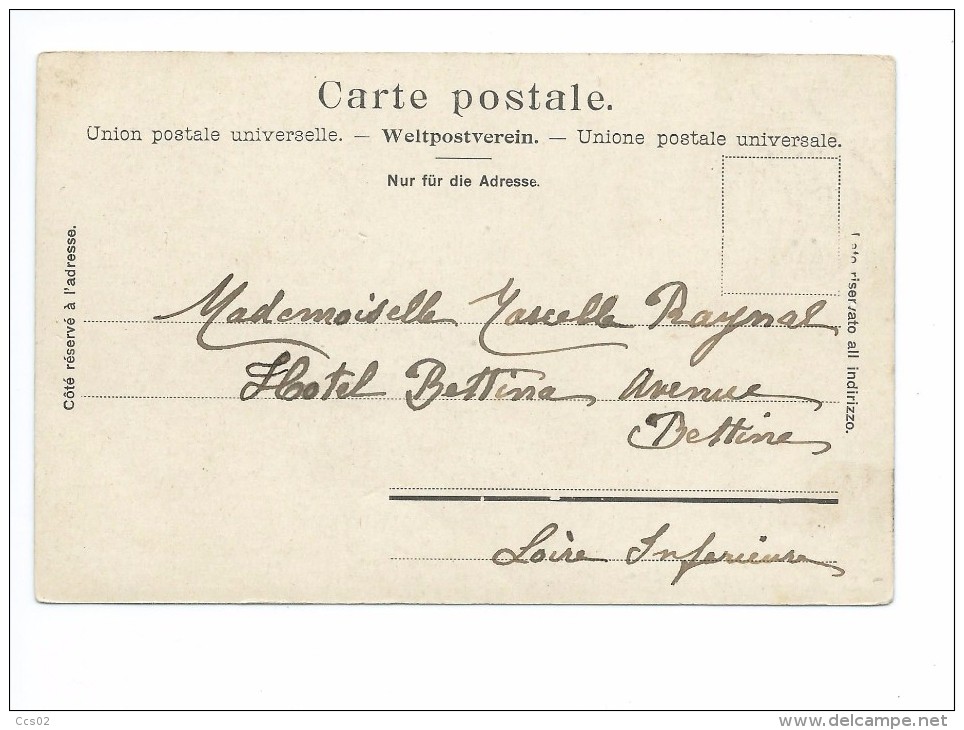 Carte postale.
Union postale universelle. — Weltpostverein. — Unione postale universale.
Nur für die Adresse.
Côté réservé à l'adresse.
riserzato all indirizzo.
Mademoiselle Raynal
Hotel Bettina Avenue
Bettine
Loire Inferieure
Ccs02
www.delcampe.net